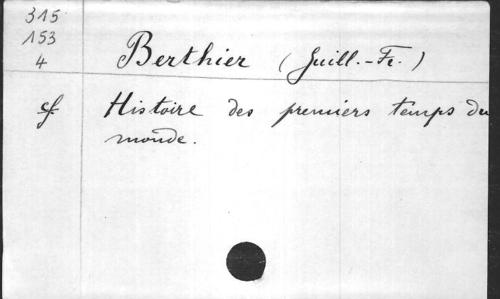 315
153
4
Berthier (Guill.-Fr.)
cf Histoire des premiers temps du
monde.